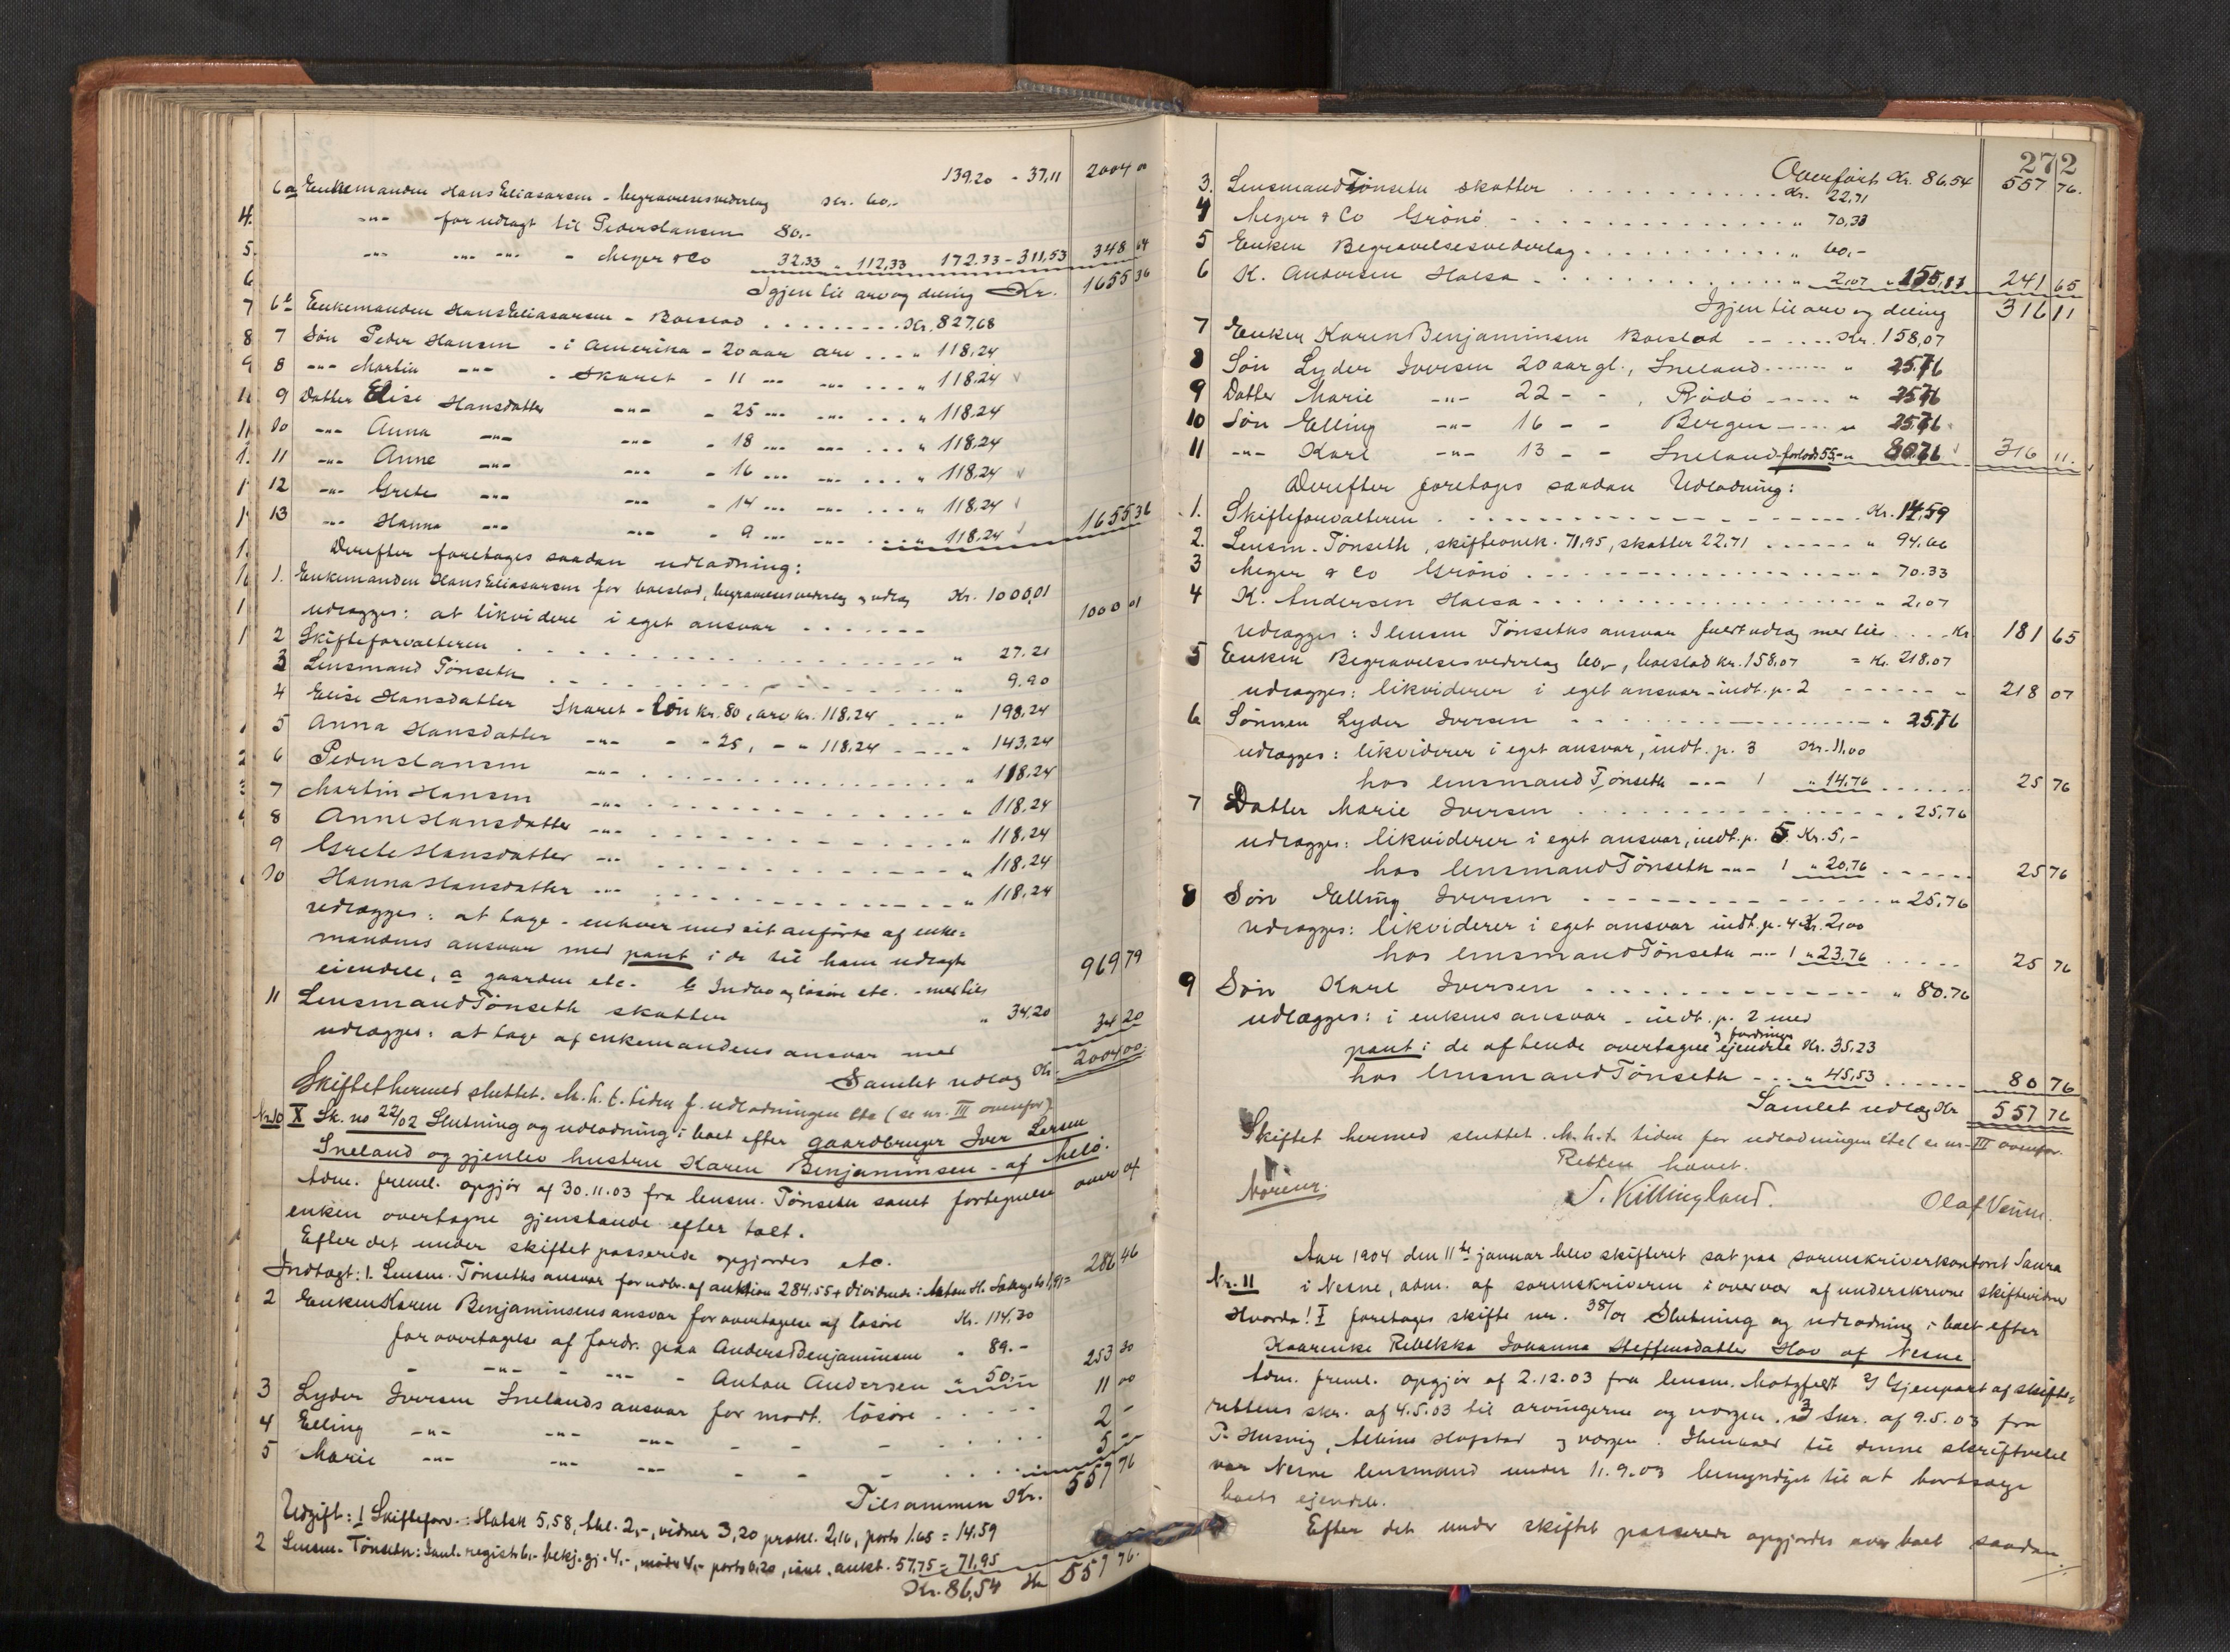 139.20 - 37,11 2004 00
6a Enkemanden Hans Eliasarsen - begravelsesvederlag Kr. 60,-
-"- for udlagt til Peder Hansen 80,-
-"- -"- -"- - Meyer & Co 32.33 " 112,33 172.33 - 311,53 348 64
Igjen til arv og deling Kr. 1655 36
6b Enkemanden Hans Eliasarsen - Boeslod . . . . . . . . . Kr. 827,68
7 Søn Peder Hansen - i Amerika - 20 aar arv . . . " 118,24
8 -"- Martin -"- - Skaret - 11 -"- -"- . . . " 118.24
9 Datter Elise Hansdatter -"- - 25 -"- -"- . . . " 118.24
10 -"- Anna -"- -"- - 18 -"- -"- . . . " 118.24
11 -"- Anne -"- -"- - 16 -"- -"- . . . " 118.24
12 -"- Grete -"- -"- - 14 -"- -"- . . . " 118.24
13 -"- Hanna -"- -"- - 9 -"- -"- . . . " 118.24 1655 36
Derefter foretages saadan udlodning:
1. Enkemanden Hans Eliasarsen for boeslod, begravelsesvederlag og udlag Kr. 1000,01
udlægges: at likvidere i eget ansvar . . . . . . . 1000 01
2 Skifteforvalteren . . . . " 27.21
3 Lensmand Tønseth . . . . " 9.90
4 Elise Hansdatter Skaret - løn kr. 80, arv kr. 118.24 . . . . " 198.24
5 Anna Hansdatter -"- - - 25, - " 118.24 . . . . " 143,24
6 Peder Hansen -"- . . . . " 118.24
7 Martin Hansen -"- . . . . " 118.24
8 Anne Hansdatter -"- . . . . " 118.24
9 Grete Hansdatter -"- . . . . " 118.24
10 Hanna Hansdatter -"- . . . . " 118.24
udlægges: at tage - enhver med sit anførte af enke=
mandens ansvar med pant i de til ham udlagte
eiendele, a gaarden etc. b Indbo og løsøre etc. - med tils 969 79
11 Lensmand Tønseth skatter " 34.20
udlægges: at tage af enkemandens ansvar med 34 20
Samlet udlæg Kr. 2004 00
Skiftet hermed sluttet. M. h. t. tiden f. udlodningen etc (se nr. III ovenfor)
Nr 10 X Sk. no 22/02 Slutning og udlodning i boet efter gaardbruger Iver Larsen
Sneland og gjenlev hustru Karen Benjaminsen - af Melø.
Adm. freml. opgjør af 30.11.03 fra lensm. Tønseth samt fortegnelse over af
enken overtagne gjenstande efter takt.
Efter det under skiftet passerede opgjordes etc.
Indtægt: 1. Lensm. Tønseths ansvar for udbr. af auktion 284.55 + dividende: Anton H. 1,91 = 286 46
2 Enken Karen Benjaminsens ansvar for overtagelse af løsøre Kr. 114,30
for overtagelse af fordr. paa Anders Benjaminsen " 89.-
- -"- - -"- - Anton Andersen " 50,- 253 30
3 Lyder Iversen Snelands ansvar for modt. løsøre . . . . . 11 00
4 Elling -"- -"- -"- - - - . . . . . 2 -
5 Marie -"- -"- -"- - - - . . . . . 5 -
Tilsammen Kr. 557 76
Udgift: 1 Skifteforv.: Halsk 5,58, bal. 2,-, vidner 3,20 prokl. 2,16, porto 1.65 = 14.59
2 Lensm. Tønseth: Saml. registr 6,- bekj. gj. 4,-, møde 4,- porto 0,20, ind. aukt. 57,75 = 71,95
Kr. 86,54 Kr 557 76.
272
Overført Kr. 86,54 557 76.
3. Lensmand Tønseth skatter . . . . Kr. 22,71
4 Meyer & Co Grønø . . . . " 70,33
5 Enken Begravelsesvederlag . . . . " 60,-
6 K. Andersen Halsa . . . . " 2,07 " 155,11 241 65
Igjen til arv og deling 316 11
7 Enken Karen Benjaminsen Boeslod . . . . Kr. 158,07
8 Søn Lyder Iversen 20 aar gl., Sneland . . . . " 25.76
9 Datter Marie -"- 22 - - , Rødø . . . . " 25.76
10 Søn Elling -"- 16 - - Bergen . . . . " 25.76
11 -"- Karl -"- 13 - - Sneland forlods 55,- " 80.76 316 11.
Derefter foretages saadan Udlodning:
1. Skifteforvalteren . . . . Kr. 14,59
2. Lensm. Tønseth, skifteomk. 71,95, skatter 22.71 . . . . " 94.66
3 Meyer & Co Grønø . . . . " 70.33
4 K. Andersen Halsa . . . . " 2,07
udlægges: I lensm Tønseths ansvar fuldt udlæg med tils . . . . Kr 181 65
5 Enken Begravelsesvederlag 60,-, boeslod kr. 158.07 = Kr. 218.07
udlægges: likviderer i eget ansvar - indt. p. 2 - - - - - - " 218 07
6 Sønnen Lyder Iversen . . . . " 25.76
udlægges: likviderer i eget ansvar, indt. p. 3 Kr. 11.00
hos lensmand Tønseth -"- 1 " 14.76 . . . . . . 25 76
7 Datter Marie Iversen . . . . " 25,76
udlægges: likviderer i eget ansvar, indt. p. 5 Kr. 5,-
hos lensmand Tønseth -"- 1 " 20.76 . . . . . . 25 76
8 Søn Elling Iversen . . . . " 25.76
udlægges: likviderer i eget ansvar indt. p. 4 Kr. 2,00
hos lensmand Tønseth -"- 1 " 23.76 . . . . . 25 76
9 Søn Karl Iversen . . . . " 80.76
udlægges: i enkens ansvar - indt. p. 2 med
pant i de af hende overtagne ejendele og fordringer Kr. 35.23
hos lensmand Tønseth - . . " 45,53 . . . . . . 80 76
Samlet udlæg Kr 557 76
Skiftet hermed sluttet. M. h. t. tiden for udlodningen etc (se nr. III ovenfor.
Retten hævet.
S. Killingland. Olaf
Aar 1904 den 11te januar blev skifteret sat paa sorenskriverkontoret Saura
Nr. 11 i Nesne, adm. af sorenskriveren i overvær af underskrevne skiftevidner
Hvorda! I foretages skifte nr. 38/01 Slutning og udlodning i boet efter
Rebekka Johanna Steffensdatter Hov af Nesne
Adm. freml. opgjør af 2.12.03 fra lensm. Motzfeldt 2) Gjenpart af skifte=
rettens skr. af 4.5.03 til arvingerne og værgen. 3) Skr. af 9.5.03 fra
P. Husvig, Hofstad og værgen. I henhold til denne skriftvexel
var Nesne lensmand under 11.9.03 bemyndiget til at bortsælge
boets ejendele.
Efter det under skiftet passerede opgjordes over boet saadan